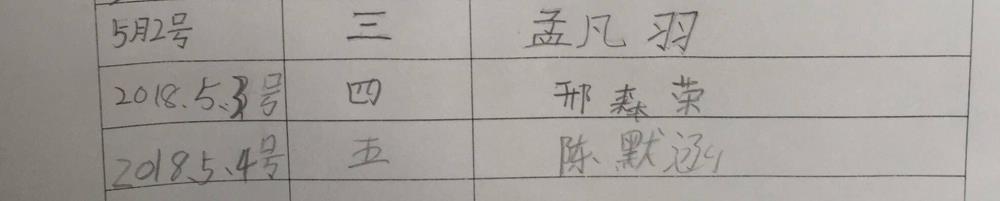 5月2号 三 孟凡羽
2018.5.3号 四 邢森荣
2018.5.4号 五 陈默涵